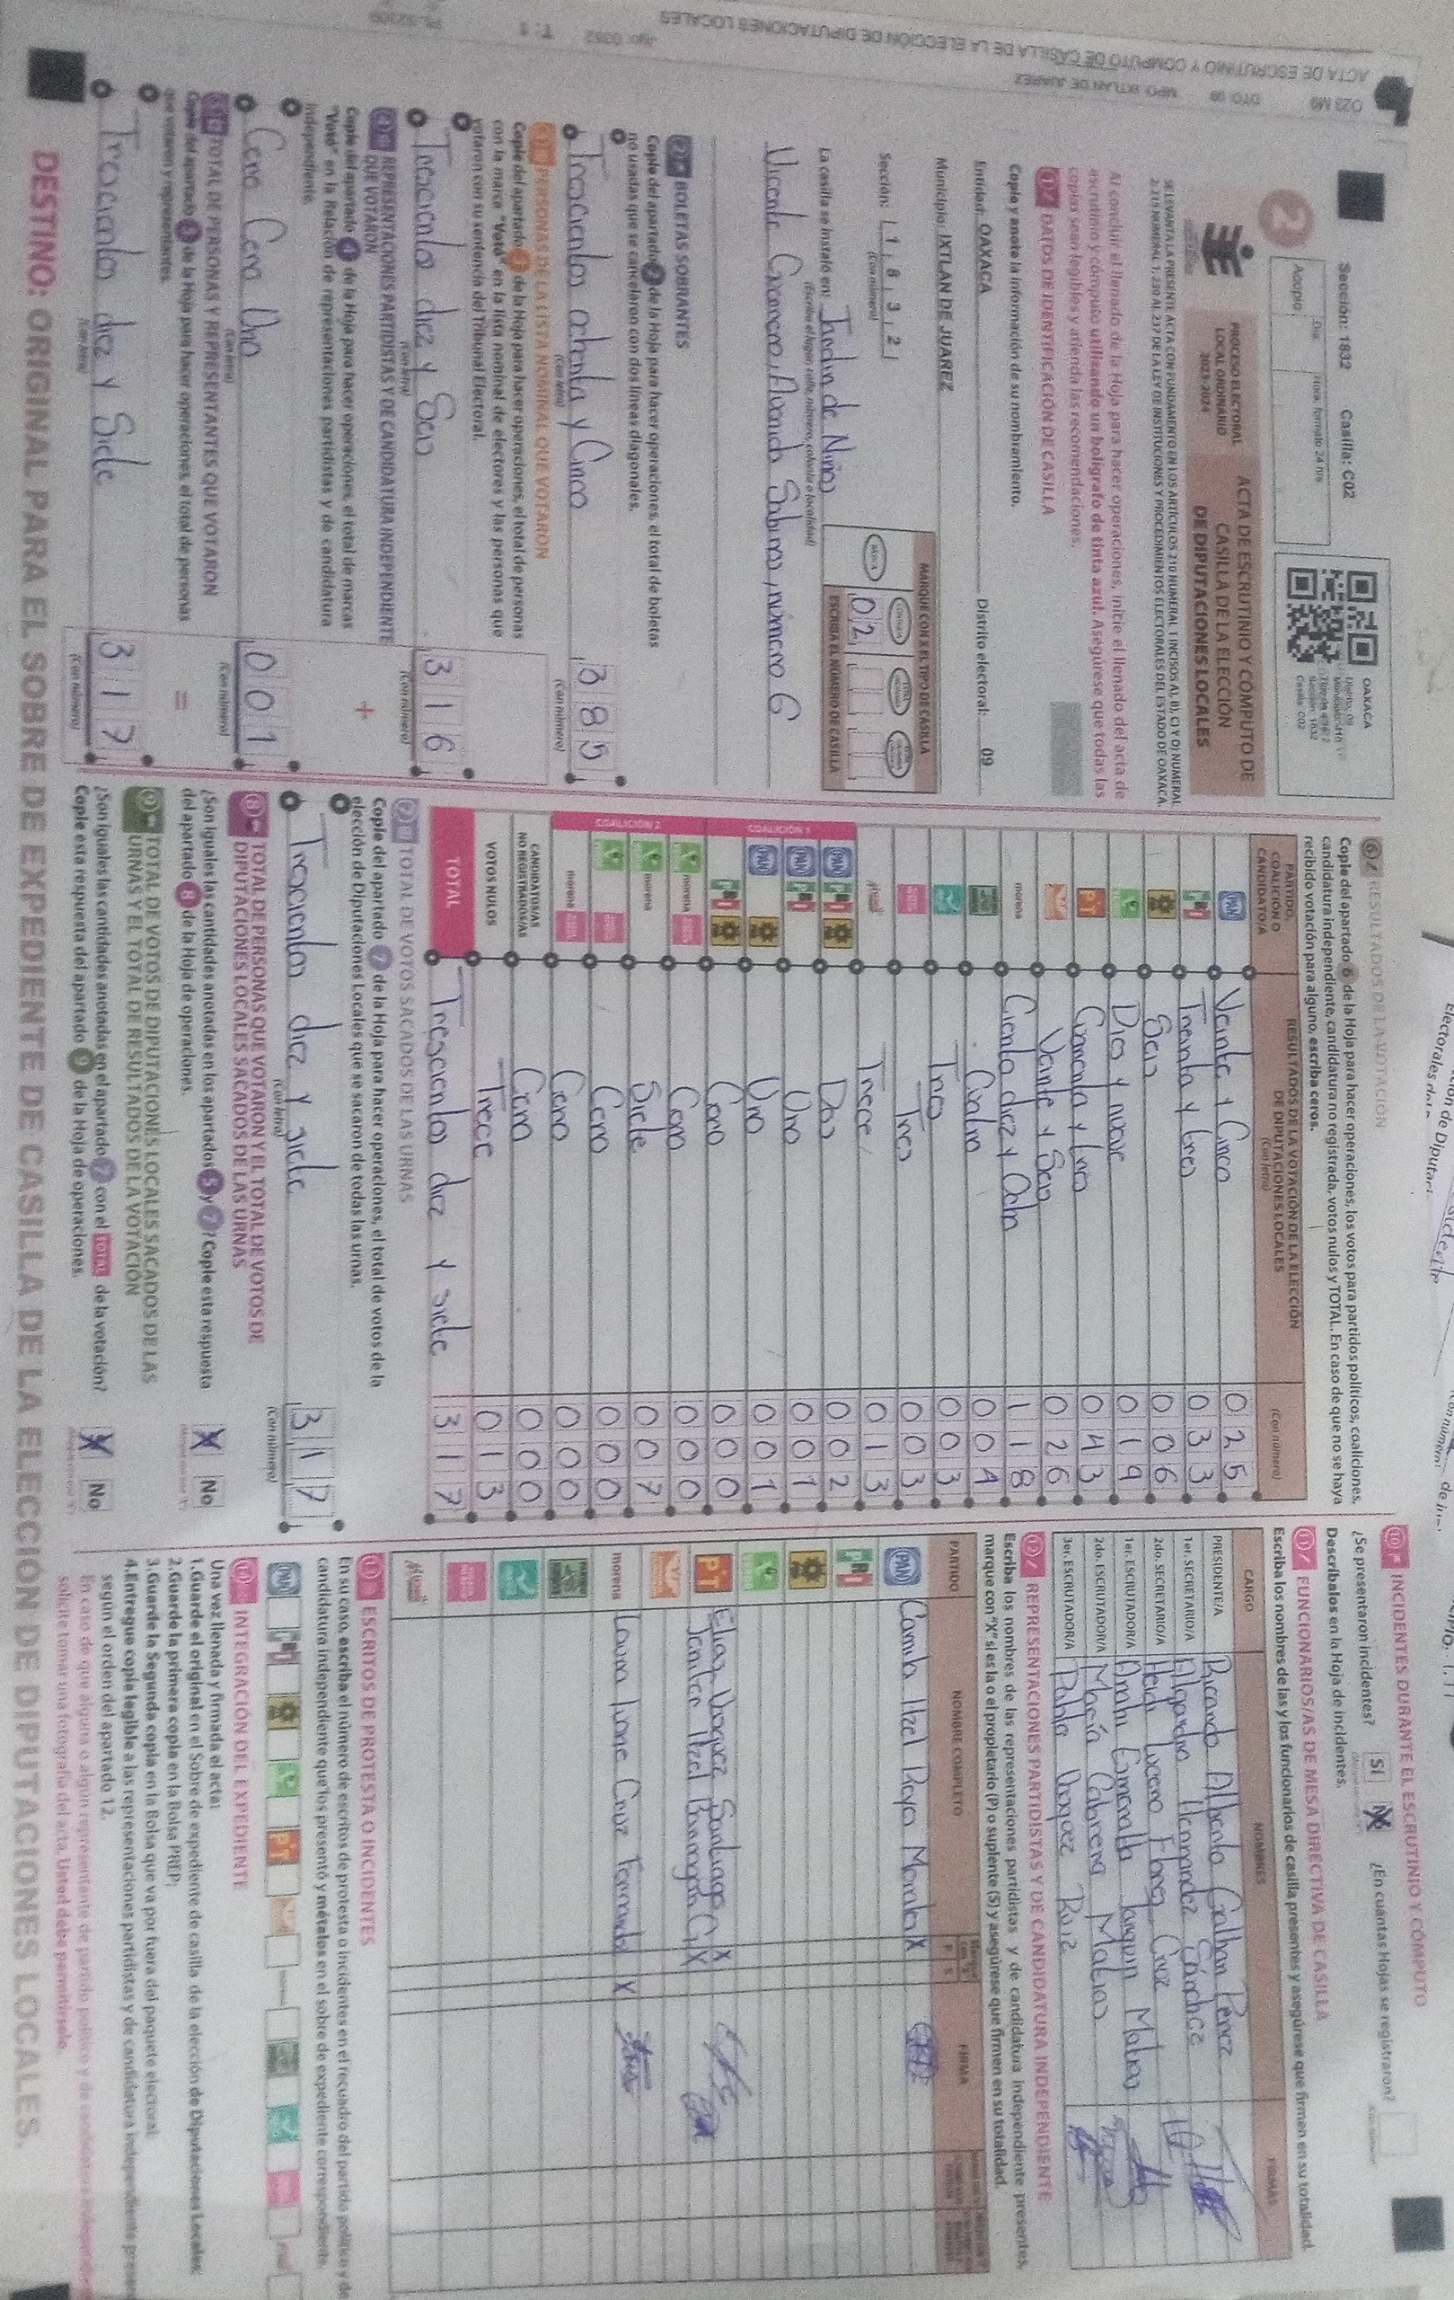 Sección: 1832 Casilla: C02
Acopio
OAXACA
PROCESO ELECTORAL
LOCAL ORDINARIO
2023-2024
ACTA DE ESCRUTINIO Y CÓMPUTO DE
CASILLA DE LA ELECCIÓN
DE DIPUTACIONES LOCALES
SE LEVANTA LA PRESENTE ACTA CON FUNDAMENTO EN LOS ARTÍCULOS 210 NUMERAL 1 INCISOS A), B), C) Y D); NUMERAL
2; 215 NUMERAL 1; 230 AL 237 DE LA LEY DE INSTITUCIONES Y PROCEDIMIENTOS ELECTORALES DEL ESTADO DE OAXACA.
Al concluir el llenado de la Hoja para hacer operaciones, inicie el llenado del acta de
escrutinio y cómputo utilizando un bolígrafo de tinta azul. Asegúrese que todas las
copias sean legibles y atienda las recomendaciones.
1 DATOS DE IDENTIFICACIÓN DE CASILLA
Copie y anote la información de su nombramiento.
Entidad: OAXACA Distrito electoral: 09
Municipio: IXTLAN DE JUAREZ
Sección: 1 8 3 2
(Con número)
MARQUE CON X EL TIPO DE CASILLA
ESCRIBA EL NÚMERO DE CASILLA
02
La casilla se instaló en: Jardin de Niños
(Escriba el lugar: calle, número, colonia o localidad)
Vicente Guerrero, Avenida Sabinos, número 6
2 BOLETAS SOBRANTES
Copie del apartado 2 de la Hoja para hacer operaciones, el total de boletas
no usadas que se cancelaron con dos líneas diagonales.
Trescientos ochenta y Cinco 385
(Con letra) (Con número)
3 PERSONAS DE LA LISTA NOMINAL QUE VOTARON
Copie del apartado 3 de la Hoja para hacer operaciones, el total de personas
con la marca "Votó" en la lista nominal de electores y las personas que
votaron con su sentencia del Tribunal Electoral.
Trescientos diez y Seis 316
(Con letra) (Con número)
4 REPRESENTACIONES PARTIDISTAS Y DE CANDIDATURA INDEPENDIENTE
QUE VOTARON
+
Copie del apartado 4 de la Hoja para hacer operaciones, el total de marcas
"Votó" en la Relación de representaciones partidistas y de candidatura
independiente.
Cero Cero Uno 001
(Con letra) (Con número)
5 TOTAL DE PERSONAS Y REPRESENTANTES QUE VOTARON
=
Copie del apartado 5 de la Hoja para hacer operaciones, el total de personas
que votaron y representantes.
Trescientos diez y Siete 317
(Con letra) (Con número)
6 RESULTADOS DE LA VOTACIÓN
Copie del apartado 6 de la Hoja para hacer operaciones, los votos para partidos políticos, coaliciones,
candidatura independiente, candidatura no registrada, votos nulos y TOTAL. En caso de que no se haya
recibido votación para alguno, escriba ceros.
PARTIDO, COALICIÓN O CANDIDATO/A
RESULTADOS DE LA VOTACIÓN DE LA ELECCIÓN
DE DIPUTACIONES LOCALES
(Con letra) (Con número)
PAN Veinte y Cinco 025
PRI Treinta y tres 033
Seis 006
Diez y nueve 019
PT Cuarenta y tres 043
Veinte y Seis 026
morena Ciento diez y Ocho 118
Cuatro 004
Tres 003
Tres 003
Trece 013
COALICIÓN 1
PAN PRI Dos 002
PAN PRI Uno 001
PAN Uno 001
PRI Cero 000
COALICIÓN 2
morena Cero 000
morena Siete 007
Cero 000
morena Cero 000
CANDIDATOS/AS
NO REGISTRADOS/AS Cero 000
VOTOS NULOS Trece 013
TOTAL Trescientos diez y siete 317
7 TOTAL DE VOTOS SACADOS DE LAS URNAS
Copie del apartado 7 de la Hoja para hacer operaciones, el total de votos de la
elección de Diputaciones Locales que se sacaron de todas las urnas.
Trescientos diez y siete 317
(Con letra) (Con número)
8 TOTAL DE PERSONAS QUE VOTARON Y EL TOTAL DE VOTOS DE
DIPUTACIONES LOCALES SACADOS DE LAS URNAS
¿Son iguales las cantidades anotadas en los apartados 5 y 7? Copie esta respuesta
del apartado 8 de la Hoja de operaciones.
X No
9 TOTAL DE VOTOS DE DIPUTACIONES LOCALES SACADOS DE LAS
URNAS Y EL TOTAL DE RESULTADOS DE LA VOTACIÓN
¿Son iguales las cantidades anotadas en el apartado 7 con el TOTAL de la votación?
Copie esta respuesta del apartado 9 de la Hoja de operaciones.
X No
10 INCIDENTES DURANTE EL ESCRUTINIO Y CÓMPUTO
¿Se presentaron incidentes? Sí X ¿En cuántas Hojas se registraron?
Descríbalos en la Hoja de incidentes.
11 FUNCIONARIOS/AS DE MESA DIRECTIVA DE CASILLA
Escriba los nombres de las y los funcionarios de casilla presentes y asegúrese que firmen en su totalidad.
CARGO NOMBRES FIRMAS
PRESIDENTE/A Ricardo Alberto Galban Perez
1er. SECRETARIO/A Algardro Hernandez Sánchez
2do. SECRETARIO/A Heidi Lucero Flores Cruz
1er. ESCRUTADOR/A Anahi Esmeralda Yunquin Matias
2do. ESCRUTADOR/A María Cabrera Matias
3er. ESCRUTADOR/A Pablo Vasquez Ruiz
12 REPRESENTACIONES PARTIDISTAS Y DE CANDIDATURA INDEPENDIENTE
Escriba los nombres de las representaciones partidistas y de candidatura independiente presentes,
marque con "X" si es la o el propietario (P) o suplente (S) y asegúrese que firmen en su totalidad.
PARTIDO NOMBRE COMPLETO FIRMA
PAN Camila Itzel Rojo Morales X
PRI
PT Elias Vasquez Santiago X
Jenifer Itzel Barragan C. X
morena Laura Ivone Cruz Fernandez X
13 ESCRITOS DE PROTESTA O INCIDENTES
En su caso, escriba el número de escritos de protesta o incidentes en el recuadro del partido político y de
candidatura independiente que los presentó y métalos en el sobre de expediente correspondiente.
PAN PRI PT morena
14 INTEGRACIÓN DEL EXPEDIENTE
Una vez llenada y firmada el acta:
1.Guarde el original en el Sobre de expediente de casilla de la elección de Diputaciones Locales;
2.Guarde la primera copia en la Bolsa PREP;
3.Guarde la Segunda copia en la Bolsa que va por fuera del paquete electoral;
4.Entregue copia legible a las representaciones partidistas y de candidatura independiente
según el orden del apartado 12.
En caso de que alguna o algún representante de partido político y de candidatura
solicite tomar una fotografía del acta, Usted debe permitírselo.
DESTINO: ORIGINAL PARA EL SOBRE DE EXPEDIENTE DE CASILLA DE LA ELECCIÓN DE DIPUTACIONES LOCALES.
ACTA DE ESCRUTINIO Y CÓMPUTO DE CASILLA DE LA ELECCIÓN DE DIPUTACIONES LOCALES